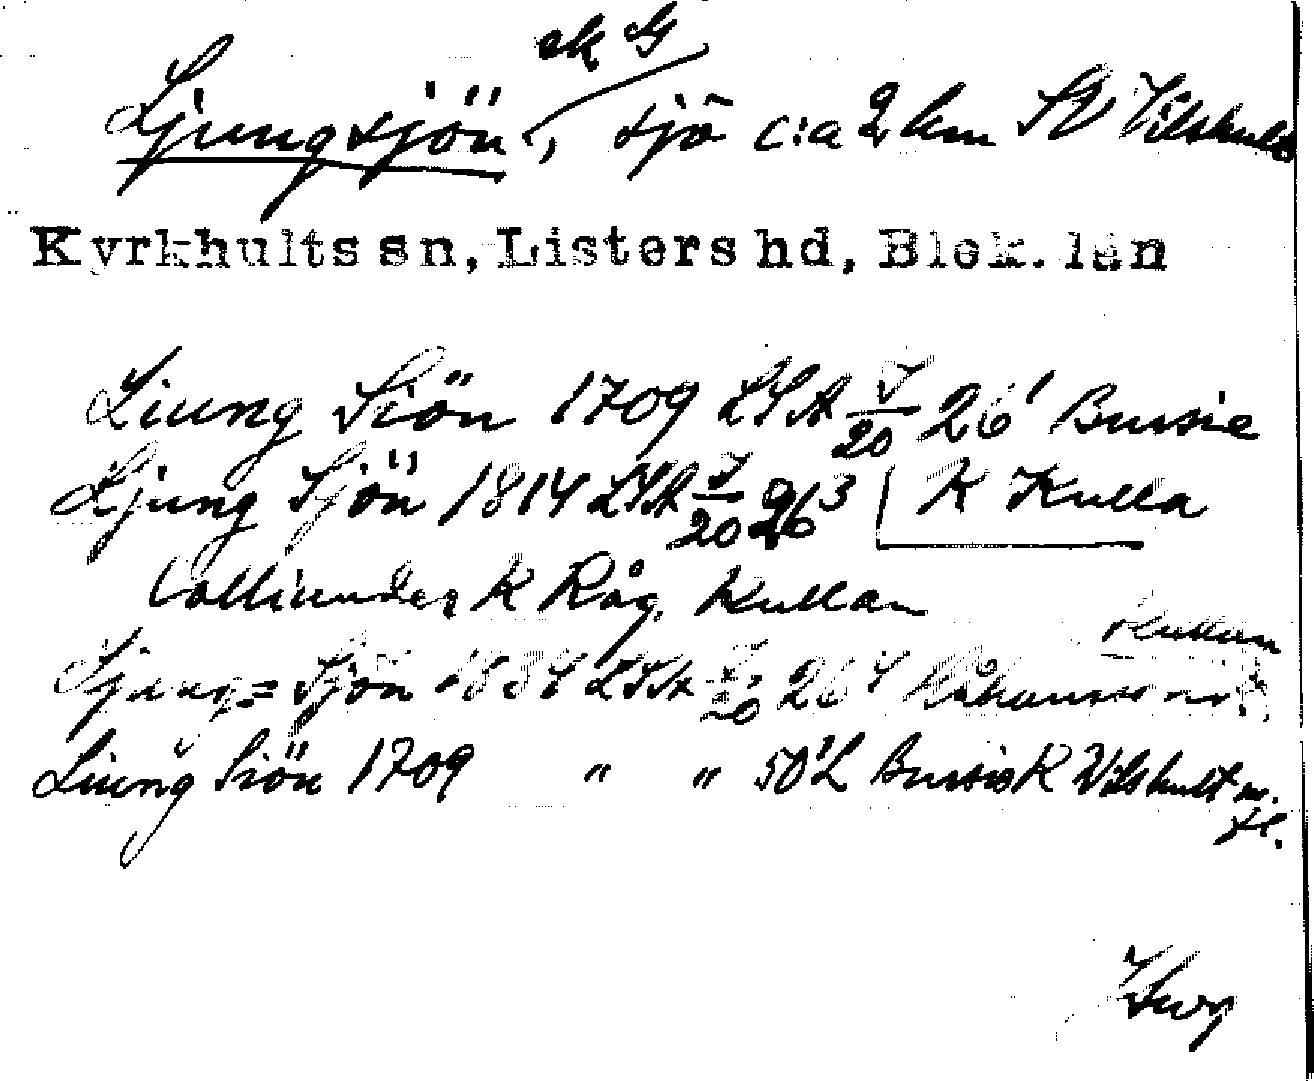 ek G
Ljungsjön, sjö c:a 2 km SV Vilshult
Kyrkhults sn, Listers hd, Blek. län
Liung Siön 1709 LSA J/20 26¹ Bussie
Ljung Sjön 1814 LSA J/20 26³ K Kulla
Colliander K Råg. Kullan
Kullan
Ljung= Sjön 1834 LSA J/20 26⁴ Håkansson
Liung Siön 1709 " " 50¹L Bussie K Vilshult m.
fl.